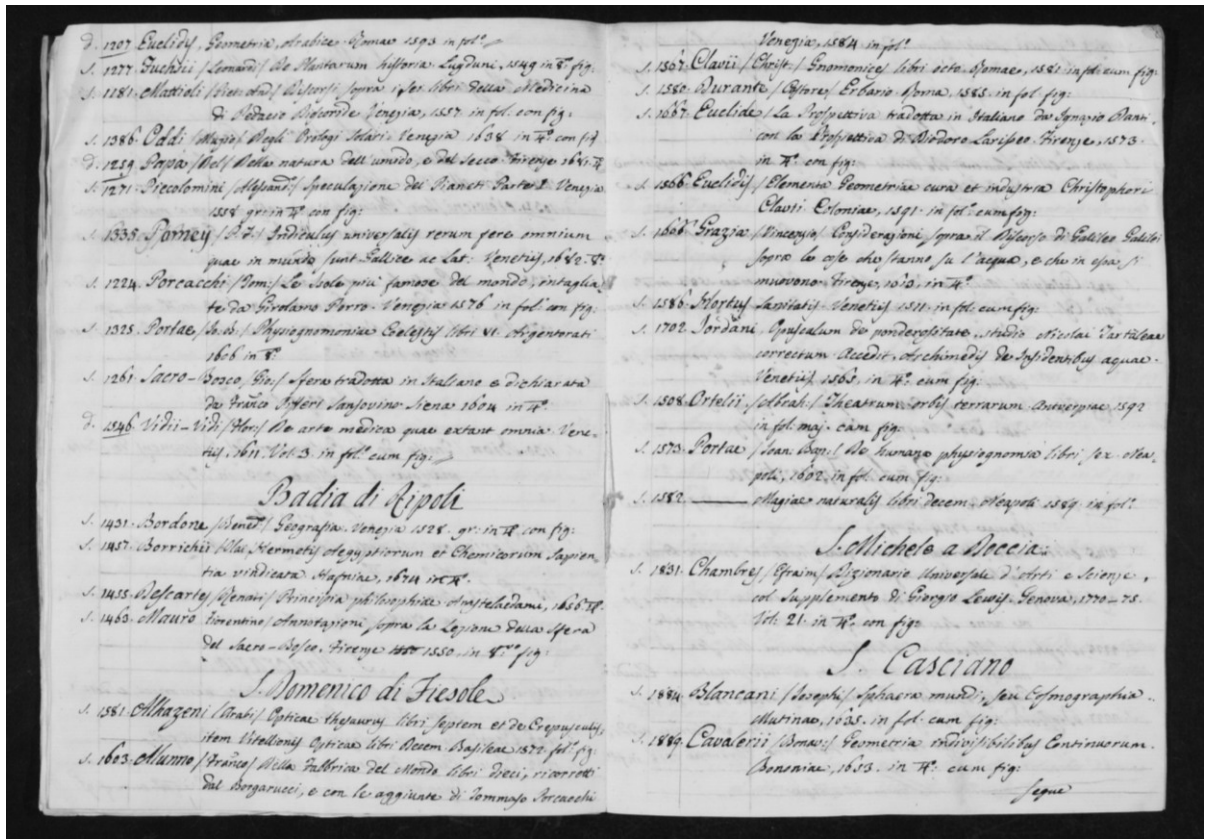 d. 1207. Euclidis, Geometria, Arabice. Romae 1593 in fol.º
s. 1277. Fuchsii /Leonardi/ De Plantarum historia Lugduni, 1549 in 8.º fig:
s. 1181. Mattioli / Discorsi, sopra i sei libri della Medicina
di Pedacio Dioscoride Venezia, 1557. in fol. con fig:
s. 1386. Oddi /Muzio/ Degli Orologi Solari. Venezia 1638. in 4.º con fig
d. 1259. Papa /Del/ Della natura dell'umido, e del Secco. Firenze 1681. 4.º
s. 1271. Piccolomini /Alessand:/ Speculazione dei Pianeti Parte 1. Venezia
1558. gr: in 4.º con fig:
s. 1335. Pomey /P. F./ Indiculus universalis rerum fere omnium
quae in mundo sunt Gallice ac Lat: Venetiis, 1682. 8.º
s. 1224. Porcacchi /Tom:/ Le Isole più famose del mondo, intaglia-
te da Girolamo Porro. Venezia 1576 in fol: con fig:
s. 1325. Portae /Jo. / Physiognomoniae Coelestis libri VI. Argentorati
1606 in 8.º
s. 1261. Sacro-Bosco /Gio:/ Sfera tradotta in Italiano e dichiarata
da Franc.º Pifferi Sansovino Siena 1604 in 4.º
d. 1546. Vidii-Vidi /Flor:/ De arte medica quae extant omnia. Vene-
tiis, 1611. Vol: 3. in fol. cum fig:
Badia di Ripoli
s. 1431. Bordone /Bened:/ Geografia. Venezia 1528. gr: in 4.º con fig:
s. 1457. Borrichii /Olai/ Hermetis Aegyptiorum et Chemicorum Sapien-
tia vindicata Hafniae, 1674 in 4.º
s. 1455. DesCartes /Renati/ Principia philosophiae Amstelaedami, 1656 4.º
s. 1463. Mauro fiorentino / Annotazioni sopra la Lezione della Sfera
del Sacro-Bosco. Firenze 1550. in 8.vo fig:
S. Domenico di Fiesole
s. 1581. Alhazeni /Arabi/ Opticae thesaurus libri septem et de Crepusculis,
item Vitellionis Opticae libri Decem. Basileae 1572. fol.º fig:
s. 1603. Alunno /Franc:/ Della Fabbrica del Mondo libri dieci, ricorretti
dal Borgarucci, e con le aggiunte di Tommaso Porcacchi
Venezia, 1584. in fol.º
s. 1567. Clavii /Christ:/ Gnomonices libri octo. Romae, 1581. in fol: cum fig:
s. 1580. Durante /Castore/ Erbario. Roma. 1585. in fol. fig:
s. 1667. Euclide / La Prospettiva tradotta in Italiano da Ignazio Danti.
con la Prospettica di Eliodoro Larisseo. Firenze, 1573.
in 4.º con fig:
s. 1566. Euclidis / Elementa Geometriae cura et industria Christophori
Clavii Coloniae, 1591. in fol.º cum fig:
s. 1606. Grazia /Vincenzio/ Considerazioni sopra il Discorso di Galileo Galilei
sopra le cose che stanno su l'acqua, e che in essa si
muovono. Firenze, 1613, in 4.º
s. 1586. Hortus Sanitatis. Venetiis 1511. in fol. cum fig:
s. 1702. Jordani, Opusculum de ponderositate, studio Nicolai Tartaleae
correctum Accedit, Archimedis de Insidentibus aquae.
Venetiis, 1565, in 4.º cum fig:
s. 1508. Ortelii /Abrah:/ Theatrum orbis terrarum. Antverpiae, 1592
in fol: maj: cum fig:
s. 1573. Portae /Joan: Bap:/ De humana physiognomia libri sex. Nea-
poli, 1602. in fol. cum fig:
s. 1582. ——— Magiae naturalis libri decem. Neapoli. 1589. in fol.º
S. Michele a Doccia.
s. 1831. Chambres /Efraim/ Dizionario Universale d'Arti e Scienze,
col Supplemento di Giorgio Lewis. Genova, 1770-75.
Vol: 21. in 4.º con fig:
S. Casciano
s. 1884. Blancani /Josephi/ Sphaera mundi, seu Cosmographia.
Mutinae, 1635. in fol. cum fig:
s. 1889. Cavalerii /Bonav:/ Geometria indivisibilibus Continuorum.
Bononiae, 1653. in 4.º cum fig:
segue